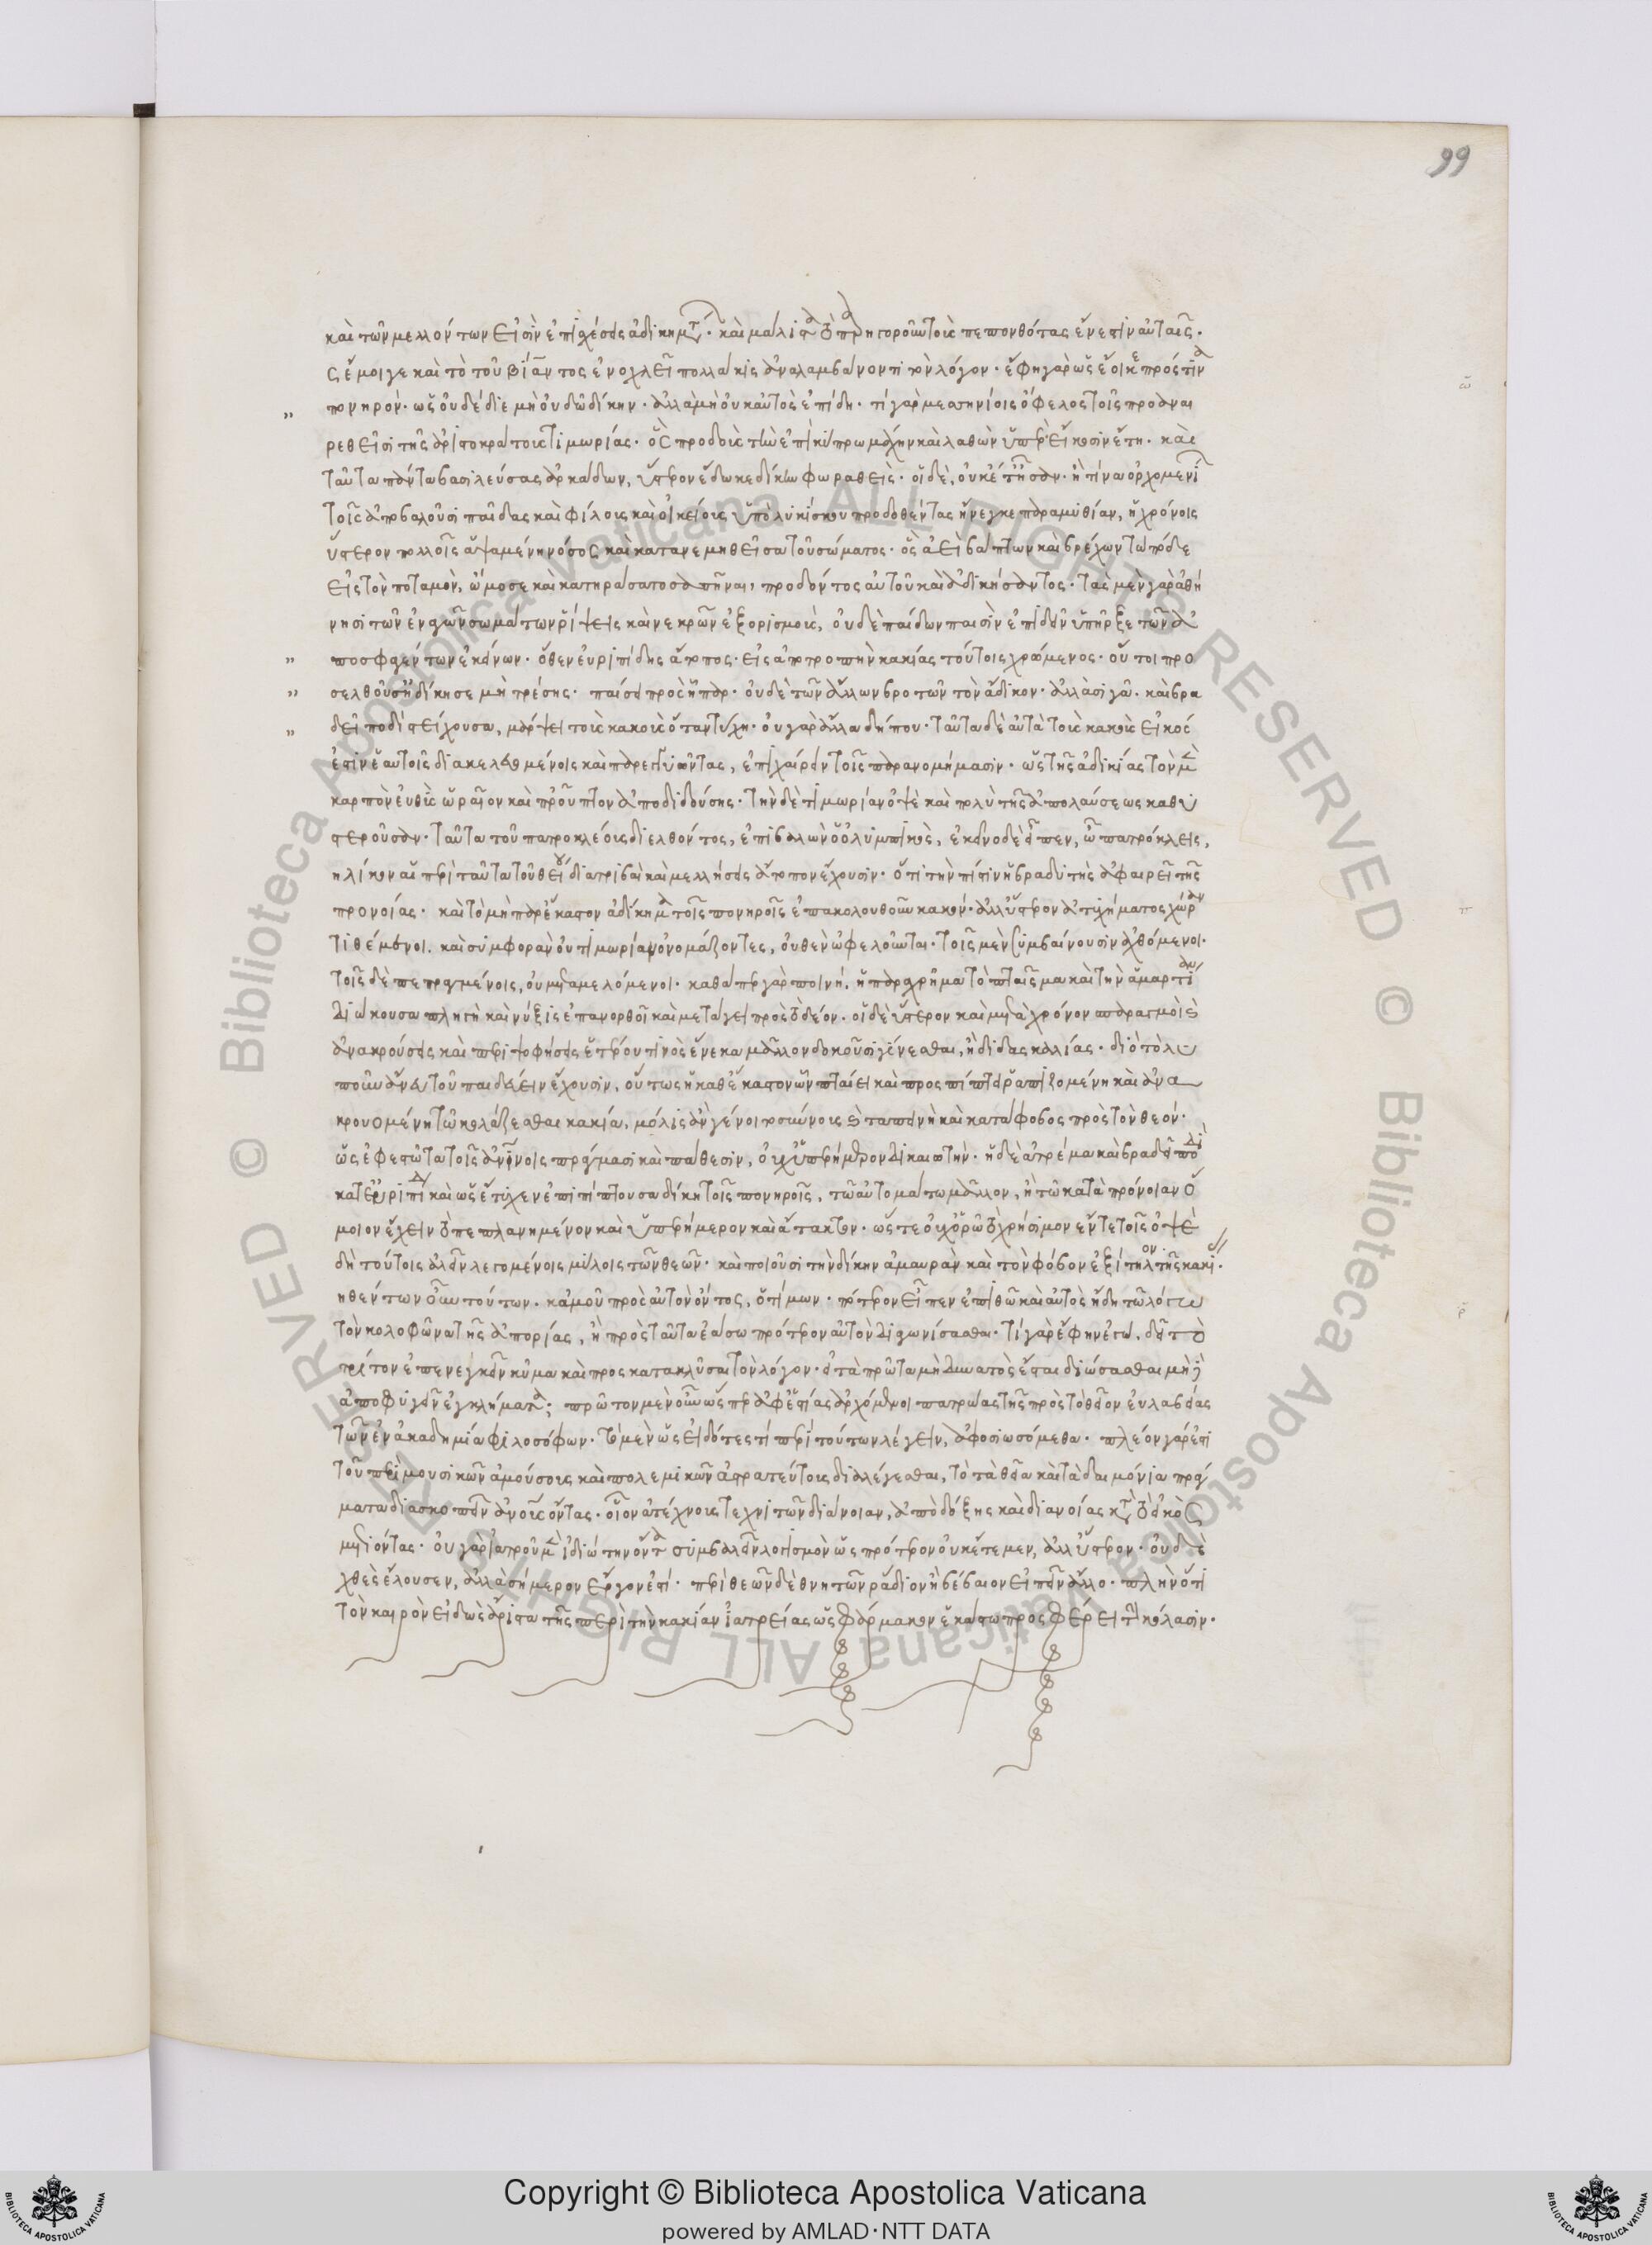 καὶ τῶν μελλόντων εἰσὶν ἐπισχέσεις ἀδικημάτ. καὶ μάλιστα τὸ παρηγοροῦν τοὺς πεπονθότας ἔνεστιν αὐταῖς·
ς ἔμοιγε καὶ τὸ τοῦ βίαντος ἐνοχλεῖ πολλάκις ἀναλαμβάνοντι τὸν λόγον· ἔφη γὰρ ὡς ἔοικε πρός τινα
πονηρὸν· ὡς οὐ δέδιε μὴ οὐ δῷ δίκην· ἀλλὰ μὴ οὐκ αὐτὸς ἐπίδῃ· τί γὰρ μεσηνίοις ὄφελος τοῖς προαναι
ρεθεῖσι τῆς ἀριστοκράτους τιμωρίας· ὃς προδοὺς τὴν ἐπὶ κύπρω μάχην καὶ λαθὼν ὑπὲρ εἴκοσιν ἔτη· καὶ
ταῦτα πάντα βασιλεύσας ἀρκάδων, ὕστερον ἔδωκε δίκην φωραθεὶς· οἱ δὲ, οὐκέτ' ἦσαν· ἢ τίνα ὀρχομενί
τοῖς ἀποβαλοῦσι παῖδας καὶ φίλους καὶ οἰκείους ὑπὸ λυκίσκου προδοθέντας ἤνεγκε παραμυθίαν, ἡ χρόνοις
ὕστερον πολλοῖς ἁψαμένη νόσος καὶ κατανεμηθεῖσα τοῦ σώματος· ὃς ἀεὶ βάπτων καὶ βρέχων τὼ πόδε
εἰς τὸν ποταμὸν, ὤμοσε καὶ κατηράσατο σαπῆναι, προδόντος αὐτοῦ καὶ ἀδικήσαντος· τὰς μὲν γὰρ ἀθή
νησι τῶν ἐναγῶν σωμάτων ῥίψεις καὶ νεκρῶν ἐξορισμοὺς, οὐδὲ παίδων παισὶν ἐπιδεῖν ὑπῆρξε τῶν ἀ
ποσφαγέντων ἐκείνων· ὅθεν εὐριπίδης ἄτοπος· εἰς ἀποτροπὴν κακίας τούτοις χρώμενος· οὔτοι προ
σελθοῦσ' ἡ δίκη σε μὴ τρέσης· παίσει πρὸς ἧπαρ· οὐδὲ τῶν ἄλλων βροτῶν τὸν ἄδικον· ἀλλὰ σῖγα· καὶ βρα
δεῖ ποδὶ στείχουσα, μάρψει τοὺς κακοὺς ὅταν τύχη· οὐ γὰρ ἄλλα δήπου· ταῦτα δὲ αὐτὰ τοὺς κακοὺς εἰκός
ἐστιν ἑαυτοῖς διακελευομένους καὶ παρεγγυῶντας, ἐπιχειρεῖν τοῖς παρανομήμασιν· ὡς τῆς ἀδικίας τὸν μὲν
καρπὸν εὐθὺς ὡραῖον καὶ προὖπτον ἀποδιδούσης· τὴν δὲ τιμωρίαν ὀψὲ καὶ πολὺ τῆς ἀπολαύσεως καθυ
στεροῦσαν· ταῦτα τοῦ πατροκλέους διελθόντος, ἐπιβαλὼν ὁ ὀλύμπικος, ἐκεῖνο δὲ εἶπεν, ὦ πατρόκλεις,
ἡλίκον αἱ περὶ ταῦτα τοῦ θείου διατριβαὶ καὶ μελλήσεις ἄτοπον ἔχουσιν· ὅτι τὴν πίστιν ἡ βραδυτὴς ἀφαιρεῖ τῆς
προνοίας· καὶ τὸ μὴ παρ' ἕκαστον ἀδίκημα τοῖς πονηροῖς ἐπακολουθοῦν κακόν· ἀλλ' ὕστερον ἀτυχήματος χώραν
τιθέμενοι. καὶ συμφορὰν οὐ τιμωρίαν ὀνομάζοντες, οὐθὲν ὠφελοῦνται· τοῖς μὲν συμβαίνουσιν ἀχθόμενοι.
τοῖς δὲ πεπραγμένοις, οὐ μεταμελόμενοι. καθάπερ γὰρ ποινή. ἡ παραχρῆμα τὸ πταῖσμα καὶ τὴν ἁμαρτίαν
διώκουσα πληγὴ καὶ νύξις ἐπανορθοῖ καὶ μετάγει πρὸς τὸ δέον. οἱ δὲ ὕστερον καὶ μετὰ χρόνον σπαραγμοὶ
ἀνακρούσεις καὶ περιψοφήσεις ἑτέρου τινὸς ἕνεκα μᾶλλον δοκοῦσι γίνεσθαι, ἢ διδασκαλίας· διὸ τὸ λυ
ποῦν ἄνευ τοῦ παιδεύειν ἔχουσιν, οὕτως ἡ καθ' ἕκαστον ὧν πταίει καὶ προσπίπτει ῥαπιζομένη καὶ ἀνα
κρουομένη τῶ κολάζεσθαι κακία, μόλις ἂν γένοιτο σύννους ταπεινὴ καὶ κατάφοβος πρὸς τὸν θεόν·
ὡς ἐφεστῶτα τοῖς ἀνθρωπίνοις πράγμασι καὶ πάθεσιν, οὐχ ὑπερήμερον δικαιωτήν· ἡ δὲ ἀτρέμα καὶ βραδεῖ ποδὶ
κατ' εὐριπίδην καὶ ὡς ἔτυχεν ἐπιπίπτουσα δίκη τοῖς πονηροῖς, τῶ αὐτομάτω μᾶλλον, ἢ τῶ κατὰ πρόνοιαν ὅ
μοιον ἔχειν τὸ πεπλανημένον καὶ ὑπερήμερον καὶ ἄτακτον· ὥστε οὐχ ὁρῶ τὸ χρήσιμον ἔν γε τοῖς ὀψὲ
δὴ τούτοις ἀλεῖν λεγομένοις μύλοις τῶν θεῶν· καὶ ποιοῦσι τὴν δίκην ἀμαυρὰν καὶ τὸν φόβον ἐξίτηλον τῆς κακίας.
ηθέντων οὖν τούτων. κἀμοῦ πρὸς αὑτὸν ὄντος, ὁ τίμων· πότερον εἶπεν ἐπιθῶ καὶ αὐτὸς ἤδη τῶ λόγω
τὸν κολοφῶνα τῆς ἀπορίας, ἢ πρὸς ταῦτα ἐάσω πρότερον αὐτὸν διαγωνίσασθαι· τί γὰρ ἔφην ἐγὼ, δεῖ τὸ
τρίτον ἐπενεγκεῖν κῦμα καὶ προσκατακλῦσαι τὸν λόγον· εἰ τὰ πρῶτα μὴ δυνατὸς ἔσται διώσασθαι μηδ'
ἀποφυγεῖν ἐγκλήματα; πρῶτον μὲν οὖν ὥσπερ ἀφ' ἑστίας ἀρχόμενοι πατρώας τῆς πρὸς τὸ θεῖον εὐλαβείας
τῶν ἐν ἀκαδημία φιλοσόφων· τὸ μὲν ὡς εἰδότες τι περὶ τούτων λέγειν, ἀφοσιωσόμεθα· πλέον γάρ ἐστι
τοῦ περὶ μουσικῶν ἀμούσους καὶ πολεμικῶν ἀστρατεύτους διαλέγεσθαι, τὸ τὰ θεῖα καὶ τὰ δαιμόνια πράγ
ματα διασκοπεῖν ἀνθρώπους ὄντας· οἷον ἀτέχνους τεχνιτῶν διάνοιαν, ἀπὸ δόξης καὶ διανοίας κατὰ τὸ εἰκὸς
μετιόντας· οὐ γὰρ ἰατροῦ μὲν ἰδιώτην ὄντα συμβαλεῖν λογισμὸν ὡς πρότερον οὐκ ἔτεμεν, ἀλλ' ὕστερον· οὐδὲ
χθὲς ἔλουσεν, ἀλλὰ σήμερον ἔργον ἐστί· περὶ θεῶν δὲ θνητῶν ῥάδιον ἢ βέβαιον εἰπεῖν ἄλλο· πλὴν ὅτι
τὸν καιρὸν εἰδὼς ἄριστα τῆς περὶ τὴν κακίαν ἰατρείας ὡς φάρμακον ἑκάστω προσφέρει τὴν κόλασιν·
99
Copyright © Biblioteca Apostolica Vaticana
powered by AMLAD·NTT DATA